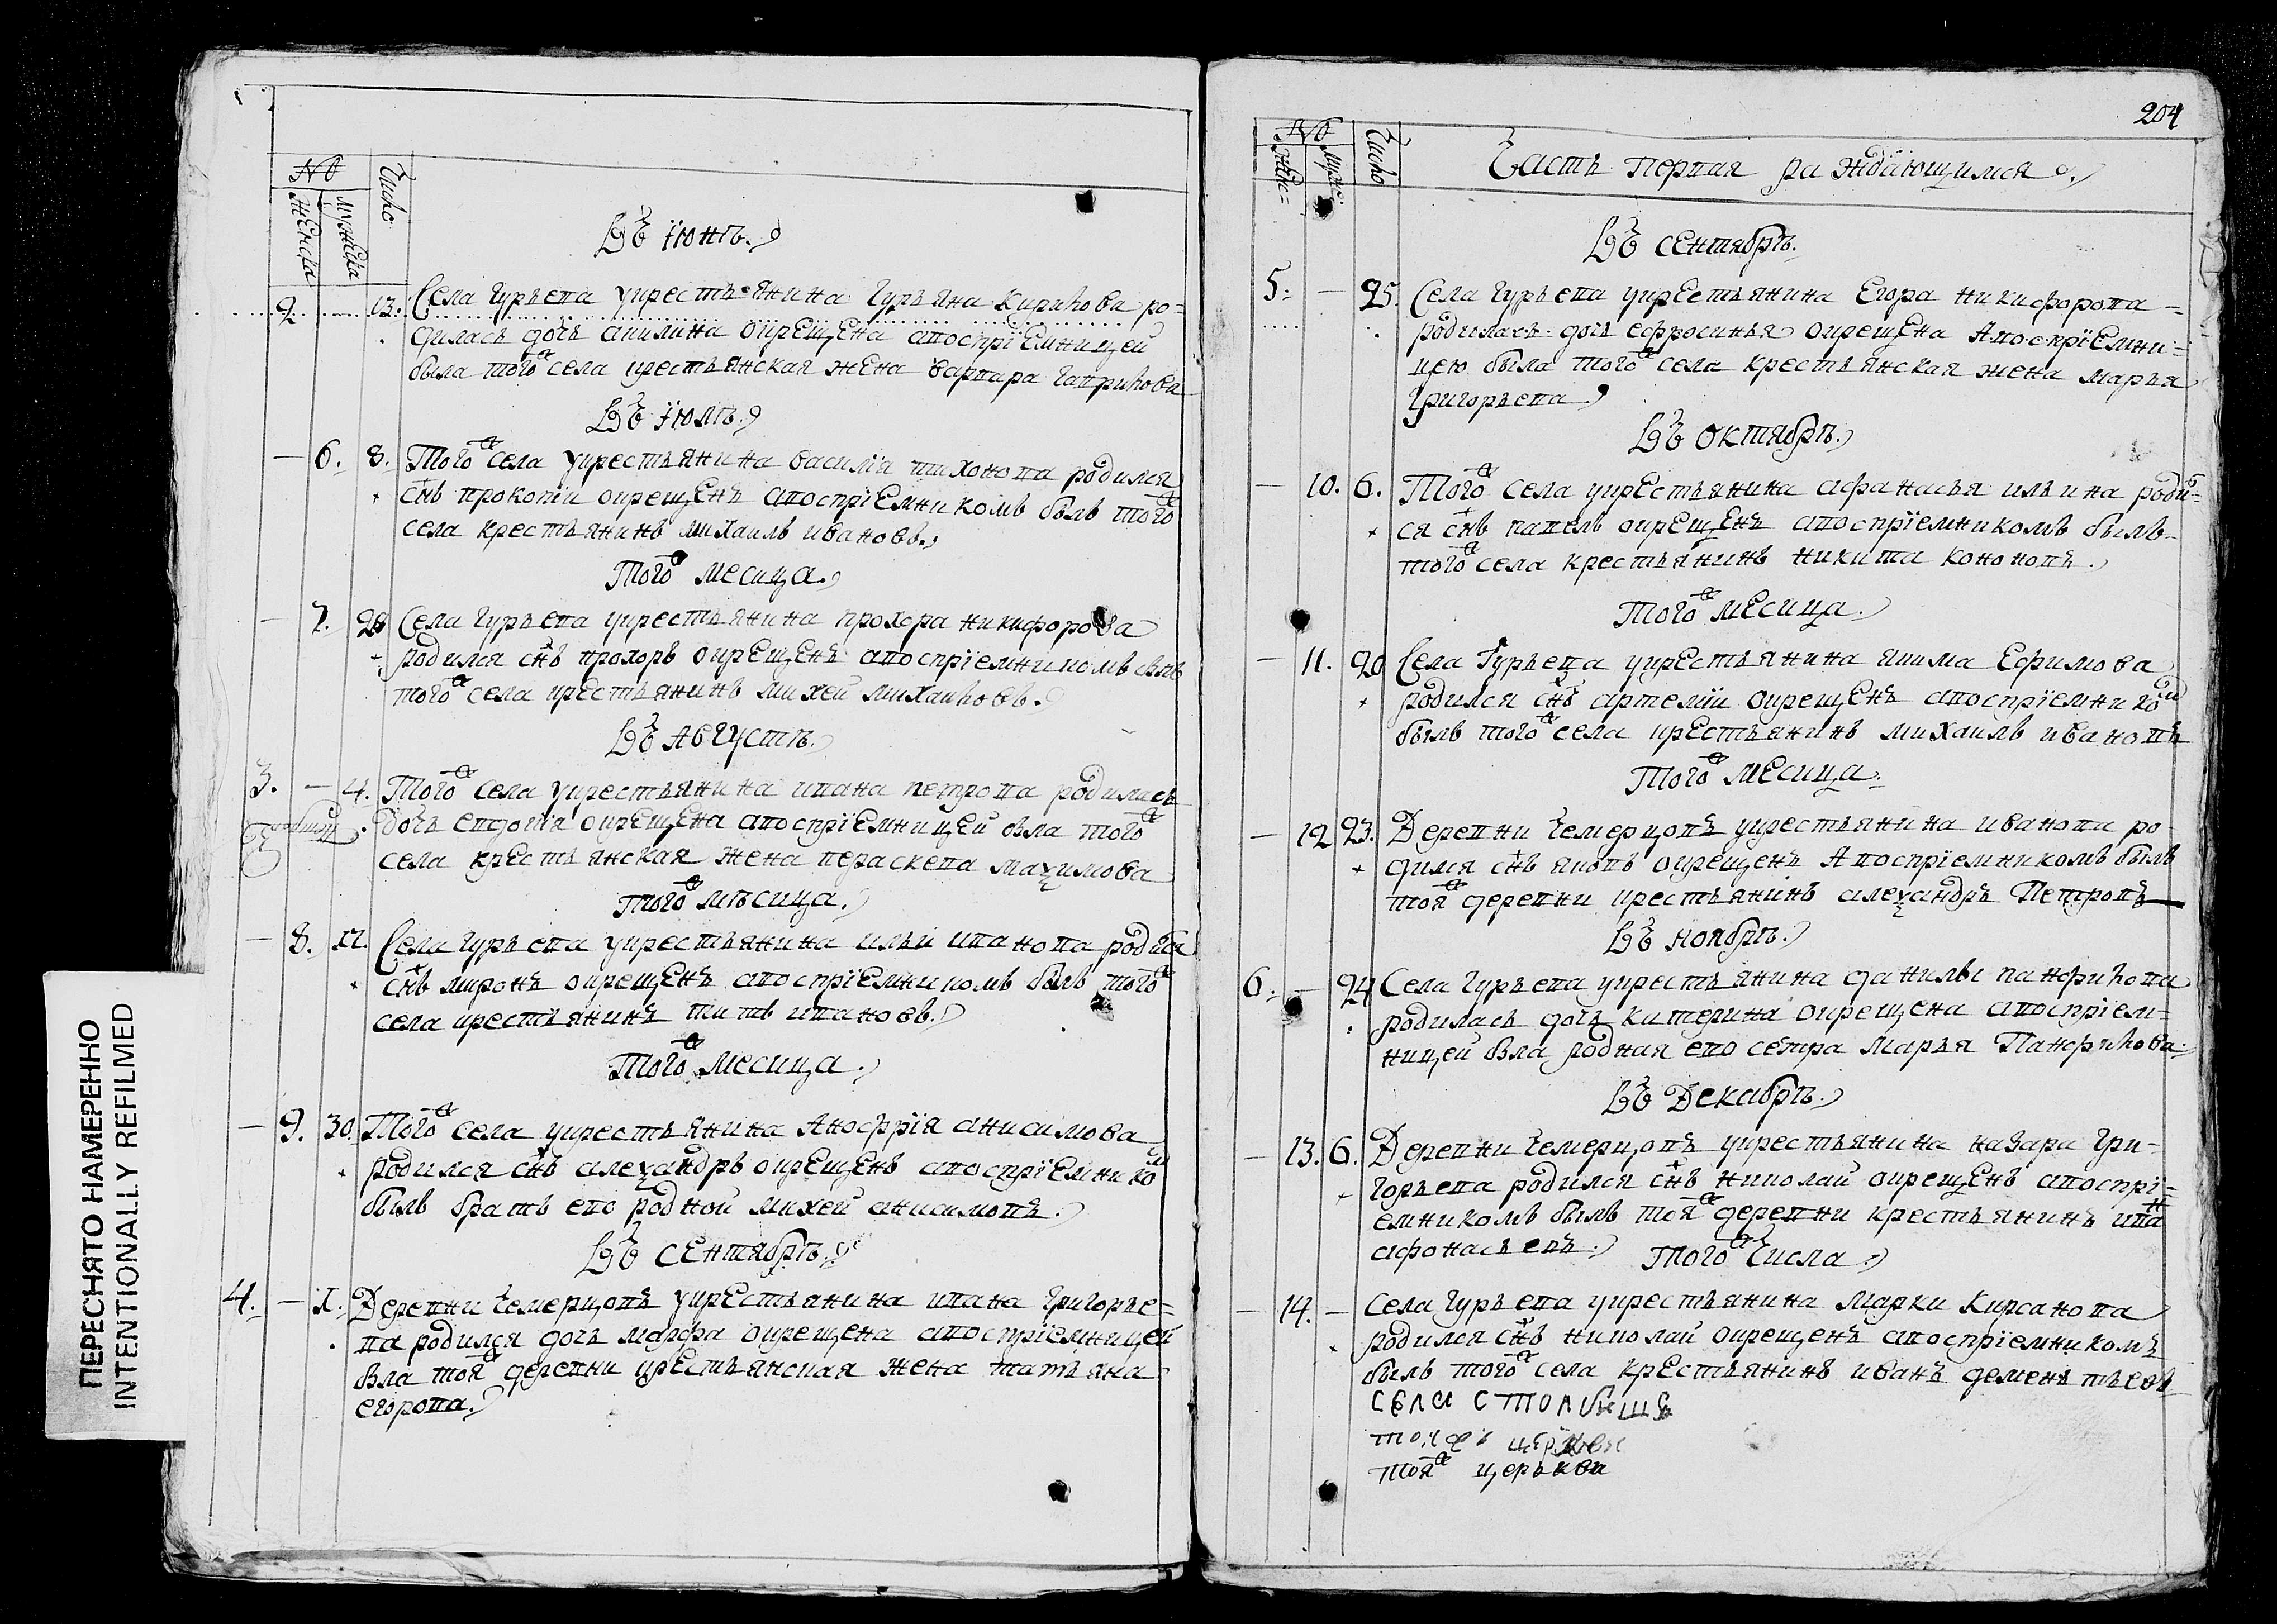 №
женска
мужеска
Число
Въ Іюнѣ.
2 13. Села Гурьева укрестьянина Гурьяна Кирилова ро-
дилась дочь акилина окрещена авоспрїемницей
была того ж села крестьянская жена варвара гаврилова
Въ Іюлѣ.
— 6. 8. Того ж села укрестьянина василїя тихонова родился
снъ прокопїи окрещенъ авоспрїемникомъ былъ того ж
села крестьянинъ михаилъ ивановъ.
Того ж месица.
— 7. Села Гурьева укрестьянина прохора никифорова
родился снъ прохоръ окрещенъ авоспрїемникомъ былъ
того ж села крестьянинъ михей михаиловъ.
Въ Августѣ.
3. — 4. Того ж села укрестьянина ивана петрова родилась
дочь евдокїя окрещена авоспрїемницей была того ж
села крестьянская жена параскева маѯимова
того ж мѣсица.
— 8. 17. Села Гурьева укрестьянина ильи иванова родился
снъ миронъ окрещенъ авоспрїемникомъ былъ того ж
села крестьянинъ титъ ивановъ.
Того ж месица.
— 9. 30. Того ж села укрестьянина Аноффрїя анисимова
родился снъ алеѯандръ окрещенъ авоспрїемником
былъ братъ ево родной михей анисимовъ.
Въ сентябрѣ.
4. — 1. Деревни Чемерцовъ укрестьянина ивана Григорье-
ва родился дочь марфа окрещена авоспрїемницей
была тоя ж деревни крестьянская жена татьяна
егорова.
204
№
женс-
муже
Число
Часть первая раждающимся
Въ сентябрѣ.
5. — 25. Села Гурьева укрестьянина Егора никифорова
родилась дочь ефросинья окрещена Авоспрїемни-
цею была того ж села крестьянская жена марья
Григорьева
Въ октябрѣ.
— 10. 6. Того ж села укрестьянина афанасья ильина родил-
ся снъ павелъ окрещенъ авоспрїемникомъ былъ
того ж села крестьянинъ никита кононовъ.
Того ж месица.
— 11. 20 Села Гурьева укрестьянина якима Ефимова
родился снъ артемїи окрещенъ авоспрїемником
былъ того ж села крестьянинъ михаилъ ивановъ
Того ж месица.
— 12 23. Деревни Чемерцовъ укрестьянина иванова ро
дился снъ яковъ окрещенъ Авоспрїемникомъ былъ
тоя ж деревни крестьянинъ алеѯандръ Петровъ
Въ ноябрѣ.
6. — 24 Села Гурьева укрестьянина данилы панфилова
родилась дочь китерина окрещена авоспрїем-
ницей была родная ево сетра Марья Панфилова.
Въ Декабрѣ.
— 13. 6. Деревни Чемерцовъ укрестьянина назара Гри-
горьева родился снъ николай окрещенъ авоспрї-
емникомъ былъ тоя ж деревни крестьянинъ иван
афонасьевъ. Того ж Числа.
— 14. — Села Гурьева укрестьянина Марки Кирсанова
родился снъ николай окрещенъ авоспрїемникомъ
былъ того ж села крестьянинъ иванъ дементьевъ
села столбище
тоя ж церькви
ПЕРЕСНЯТО НАМЕРЕННО
INTENTIONALLY REFILMED